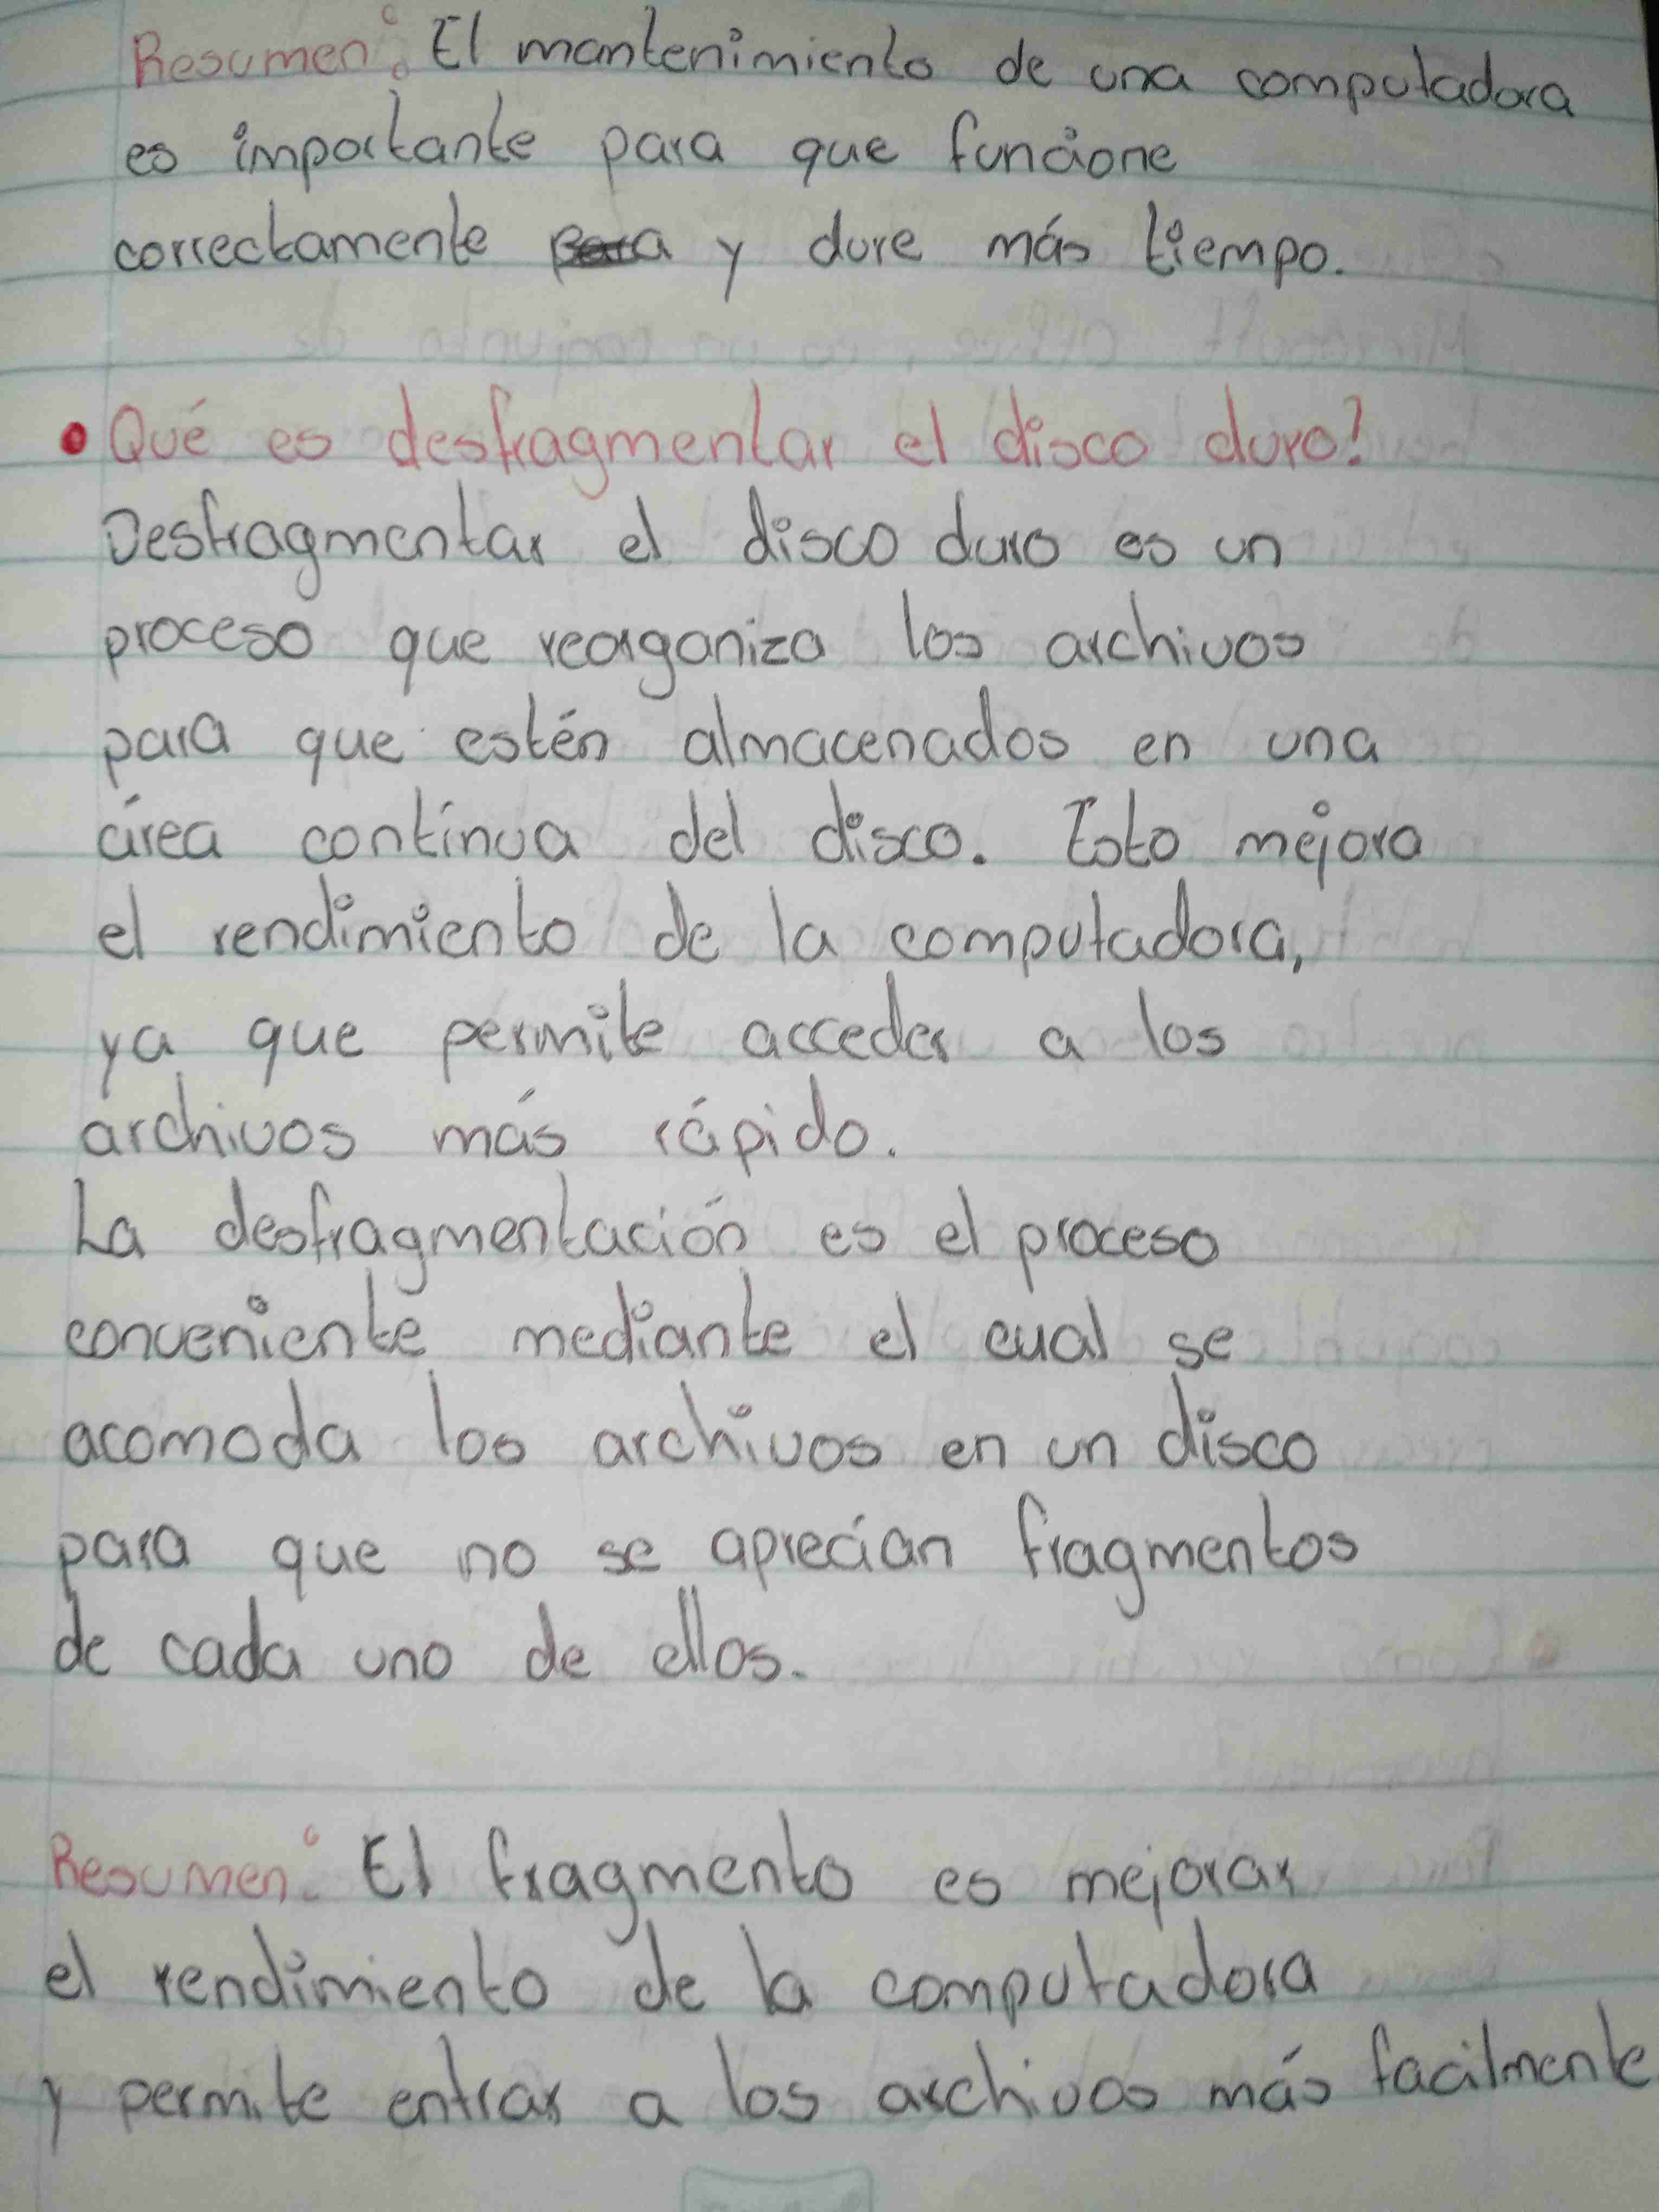 Resumen: El mantenimiento de una computadora
es importante para que funcione
correctamente y dure más tiempo.
• Qué es desfragmentar el disco duro?
Desfragmentar el disco duro es un
proceso que reorganiza los archivos
para que estén almacenados en una
área contínua del disco. Esto mejora
el rendimiento de la computadora,
ya que permite acceder a los
archivos más rápido.
La desfragmentación es el proceso
conveniente mediante el cual se
acomoda los archivos en un disco
para que no se aprecian fragmentos
de cada uno de ellos.
Resumen: El fragmento es mejorar
el rendimiento de la computadora
y permite entrar a los archivos más facilmente